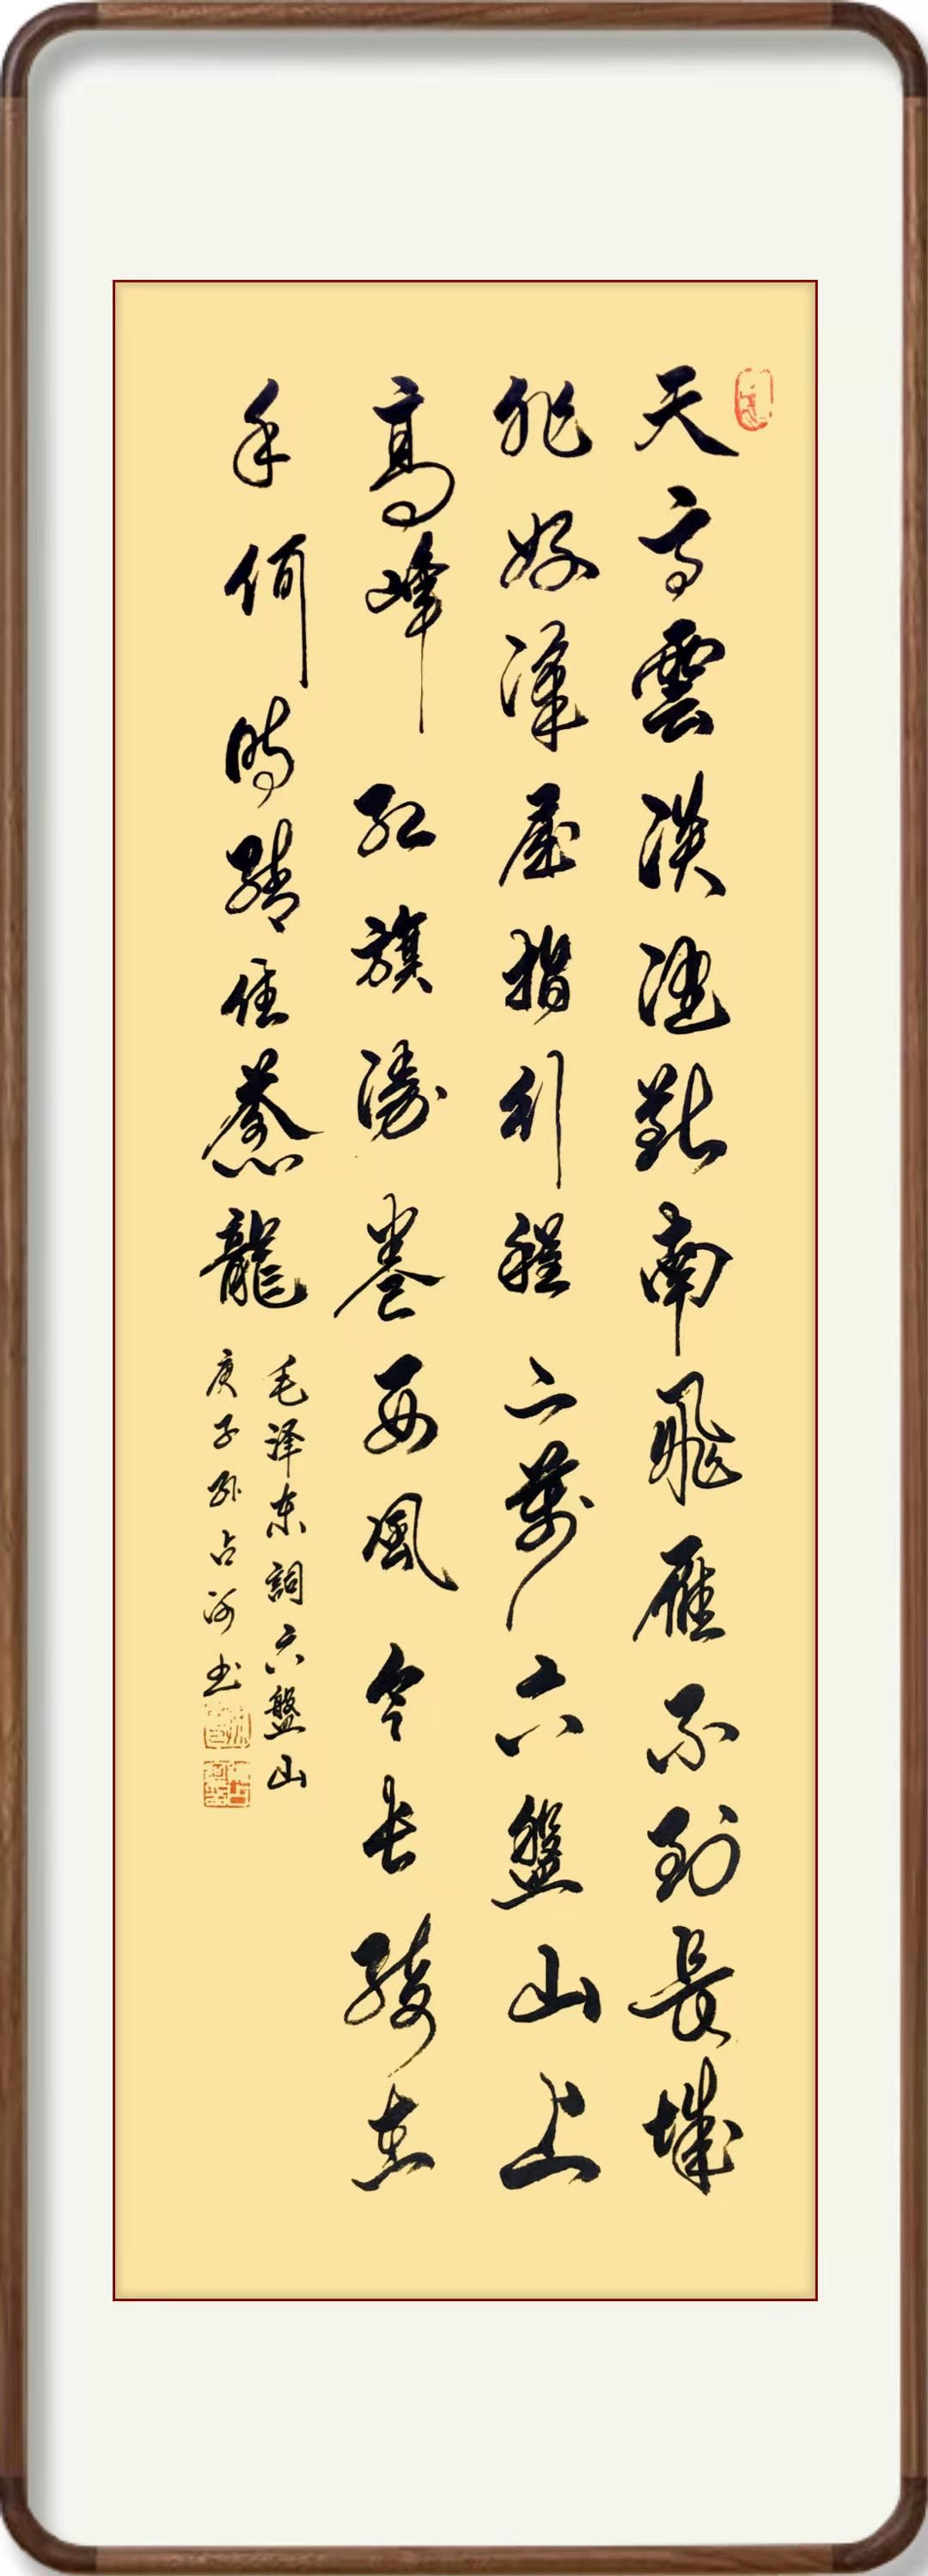 天高雲淡望斷南飛雁不到長城
非好漢屈指行程二萬六盤山上
高峰红旗漫卷西風今长缨在
手何時縛住蒼龍
毛泽东詞六盤山
庚子孙占河书